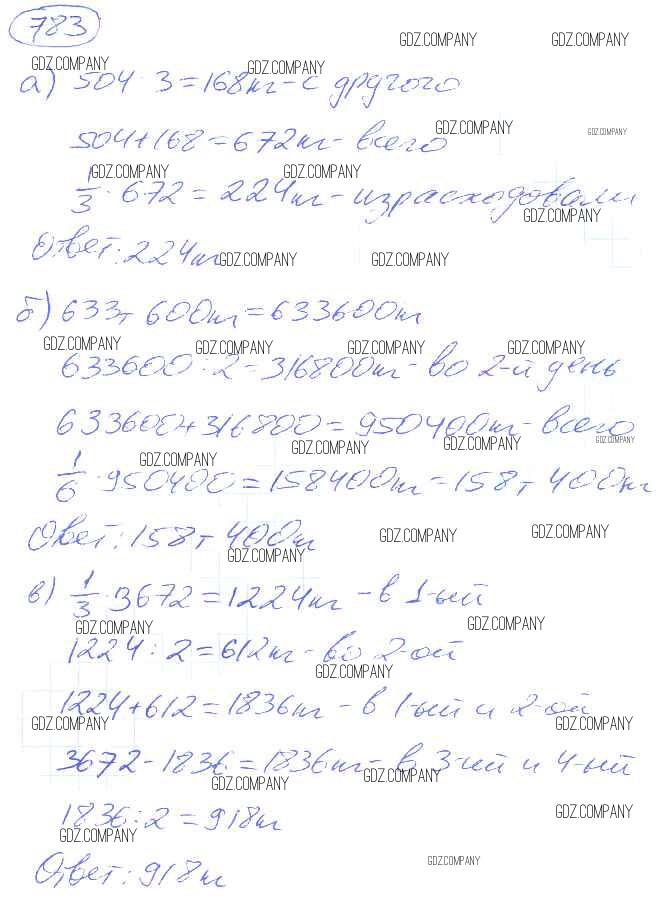 783
GDZ.COMPANY GDZ.COMPANY
GDZ.COMPANY GDZ.COMPANY
а) 504 : 3 = 168 кг - с другого
GDZ.COMPANY GDZ.COMPANY
504 + 168 = 672 кг - всего
GDZ.COMPANY GDZ.COMPANY
1/3 · 672 = 224 кг - израсходовали
GDZ.COMPANY
Ответ: 224 кг
GDZ.COMPANY GDZ.COMPANY
б) 633 т 600 кг = 633600 кг
GDZ.COMPANY GDZ.COMPANY GDZ.COMPANY GDZ.COMPANY
633600 : 2 = 316800 кг - во 2-й день
633600 + 316800 = 950400 кг - всего
GDZ.COMPANY GDZ.COMPANY GDZ.COMPANY
GDZ.COMPANY
1/6 · 950400 = 158400 кг = 158 т 400 кг
Ответ: 158 т 400 кг
GDZ.COMPANY GDZ.COMPANY
GDZ.COMPANY
в) 1/3 · 3672 = 1224 кг - в 1-ый
GDZ.COMPANY GDZ.COMPANY
1224 : 2 = 612 кг - во 2-ой
GDZ.COMPANY
1224 + 612 = 1836 кг - в 1-ый и 2-ой
GDZ.COMPANY GDZ.COMPANY
3672 - 1836 = 1836 кг - в 3-ий и 4-ый
GDZ.COMPANY GDZ.COMPANY
1836 : 2 = 918 кг
GDZ.COMPANY GDZ.COMPANY
Ответ: 918 кг
GDZ.COMPANY